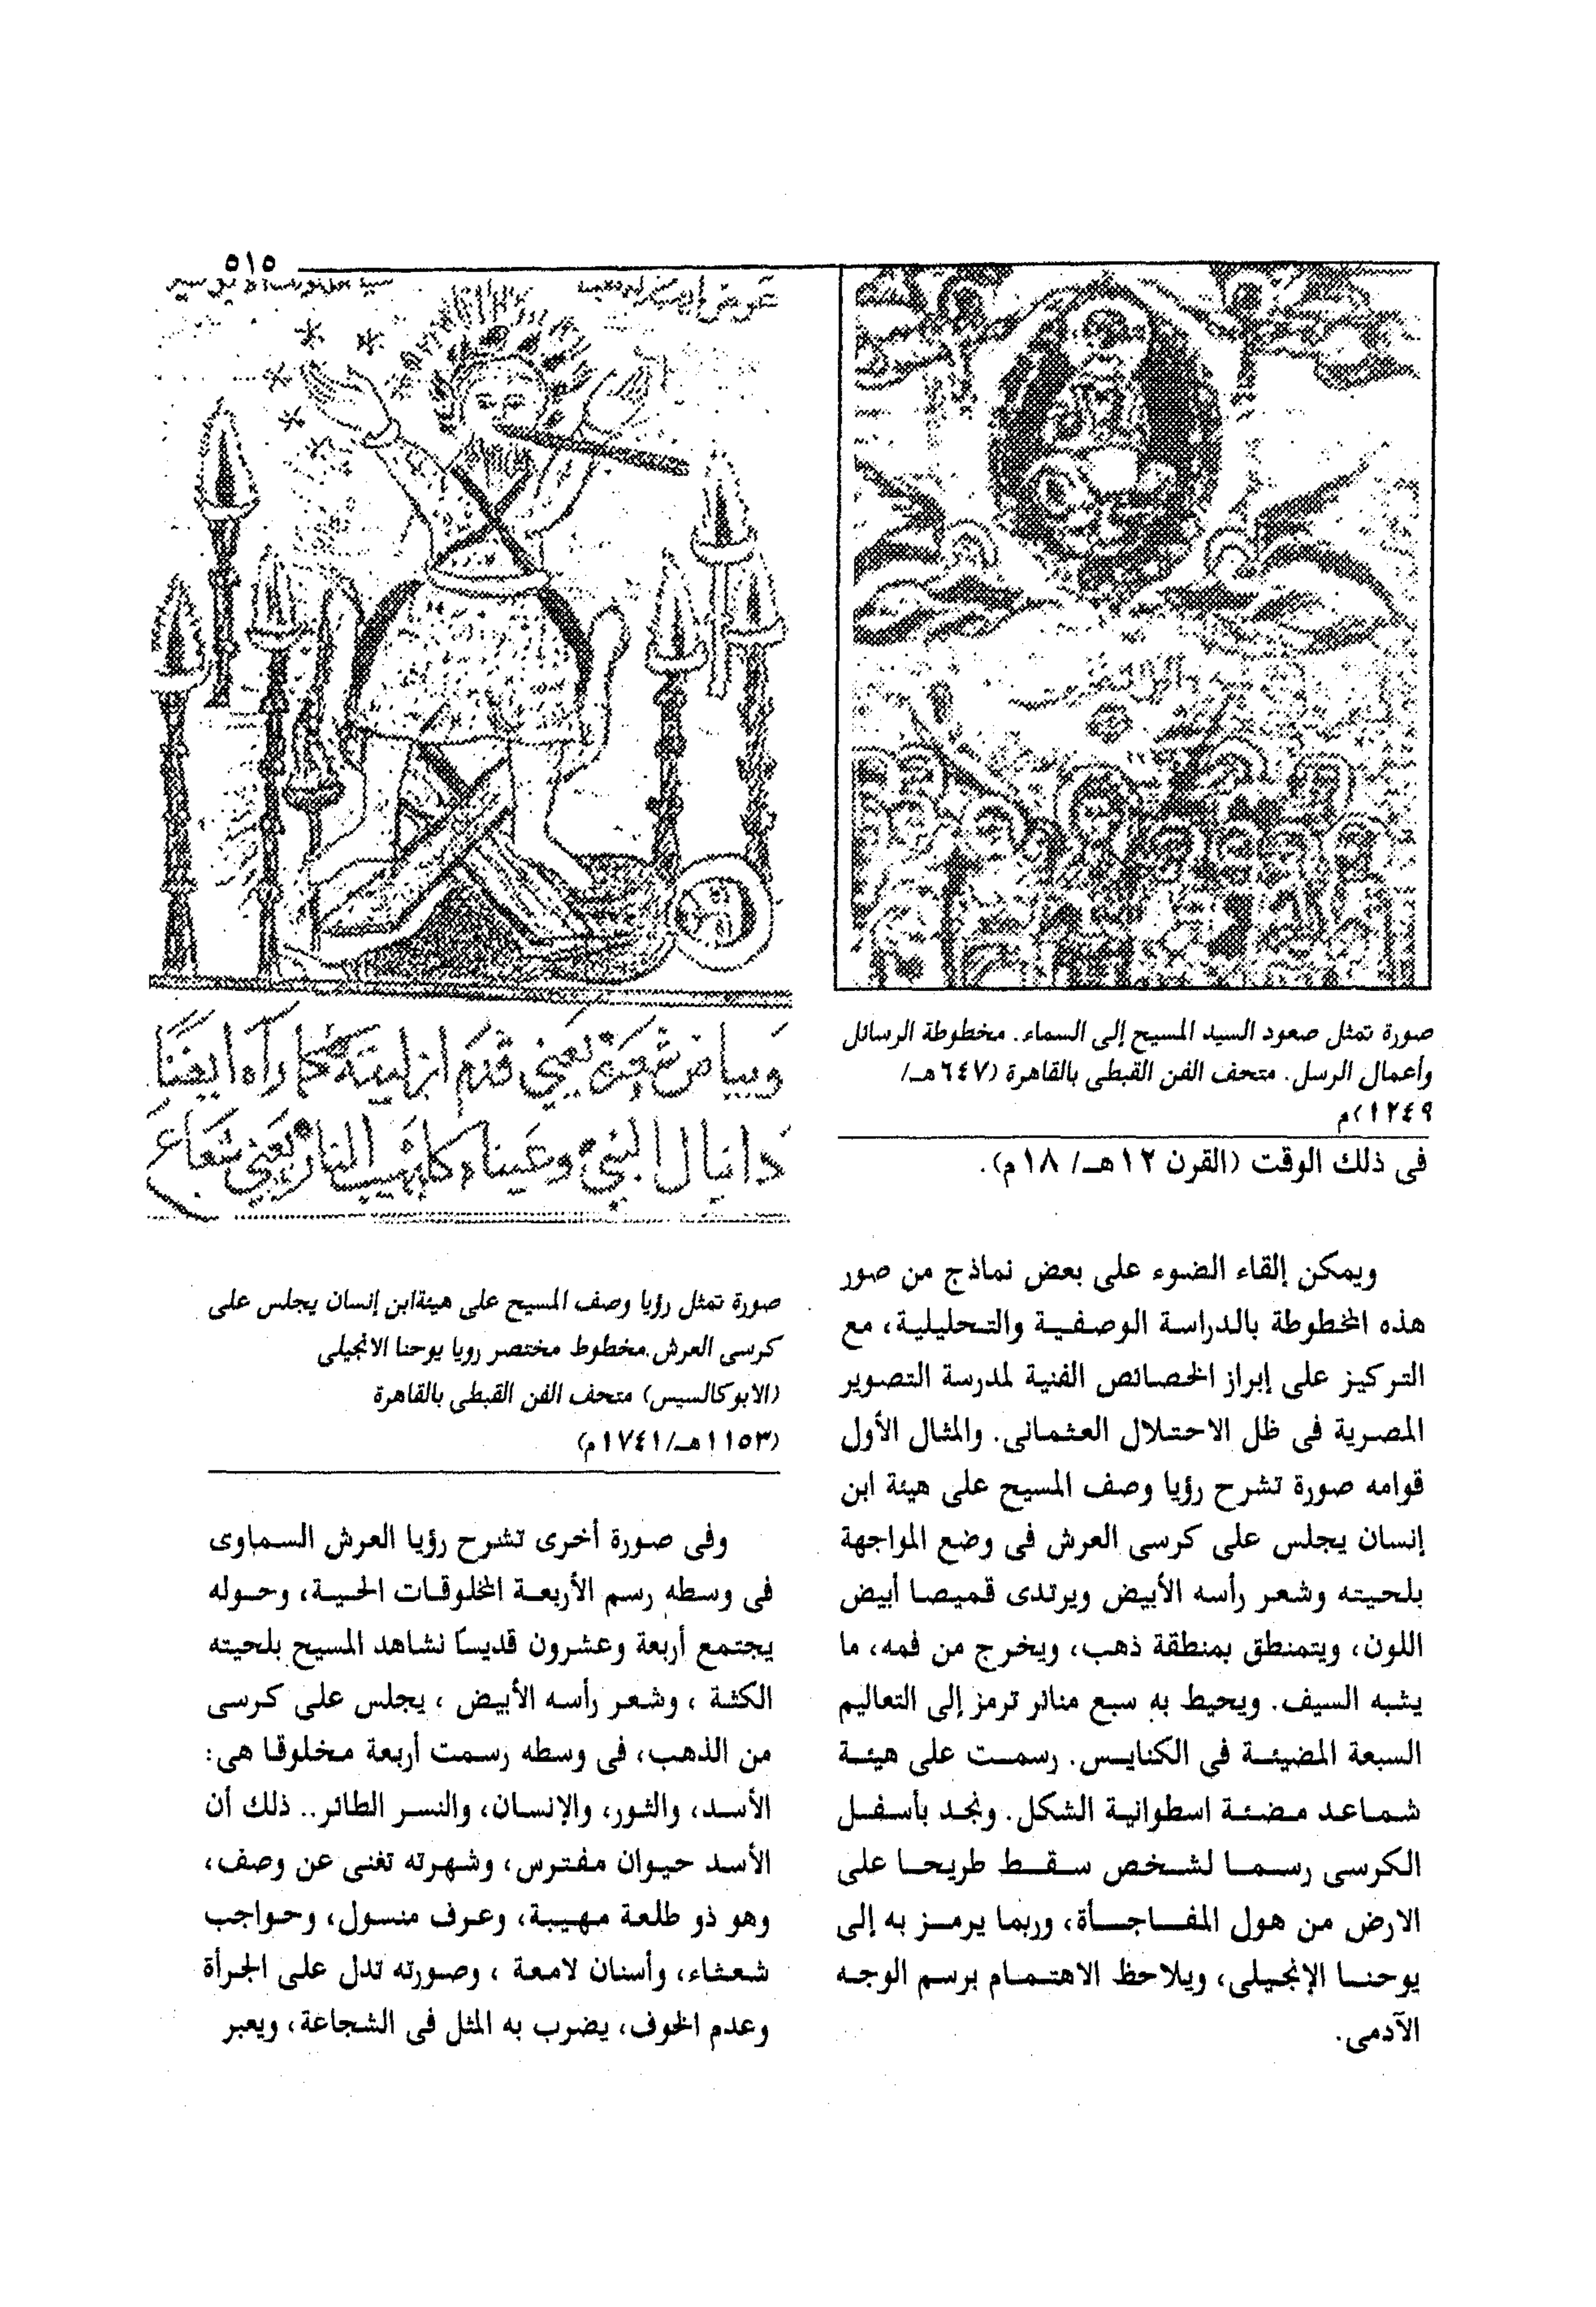 ٥١٥
صورة تمثل صعود السيد المسيح إلى السماء. مخطوطة الرسائل
وأعمال الرسل. متحف الفن القبطى بالقاهرة (٦٤٧هـ/
١٢٤٩)م
فى ذلك الوقت (القرن ١٢هـ/ ١٨م).
ويمكن إلقاء الضوء على بعض نماذج من صور
هذه المخطوطة بالدراسة الوصفية والتحليلية، مع
التركيز على إبراز الخصائص الفنية لمدرسة التصوير
المصرية فى ظل الاحتلال العثمانى. والمثال الأول
قوامه صورة تشرح رؤيا وصف المسيح على هيئة ابن
إنسان يجلس على كرسى العرش فى وضع المواجهة
بلحيته وشعر رأسه الأبيض ويرتدى قميصا أبيض
اللون، ويتمنطق بمنطقة ذهب، ويخرج من فمه، ما
يشبه السيف. ويحيط به سبع منائر ترمز إلى التعاليم
السبعة المضيئة فى الكنايس. رسمت على هيئة
شماعد مضئة اسطوانية الشكل. ونجد بأسفل
الكرسى رسما لشخص سقط طريحا على
الارض من هول المفاجأة، وربما يرمز به إلى
يوحنا الإنجيلى، ويلاحظ الاهتمام برسم الوجه
الآدمى.
وبياض شعره يعنى قدم ازليته كما رآه ايضًا
دانيال النبى وعيناه كلهيب النار يعنى شعاع
صورة تمثل رؤيا وصف المسيح على هيئةابن إنسان يجلس على
كرسى العرش.مخطوط مختصر رويا يوحنا الانجيلى
(الابوكالسيس) متحف الفن القبطى بالقاهرة
(١١٥٣هـ/١٧٤١م)
وفى صورة أخرى تشرح رؤيا العرش السماوى
فى وسطه رسم الأربعة المخلوقات الحية، وحوله
يجتمع أربعة وعشرون قديسًا نشاهد المسيح بلحيته
الكثة ، وشعر رأسه الأبيض ، يجلس على كرسى
من الذهب، فى وسطه رسمت أربعة مخلوقا هى:
الأسد، والثور، والإنسان، والنسر الطائر.. ذلك أن
الأسد حيوان مفترس، وشهرته تغنى عن وصف،
وهو ذو طلعة مهيبة، وعرف منسول، وحواجب
شعثاء، وأسنان لامعة ، وصورته تدل على الجرأة
وعدم الخوف، يضرب به المثل فى الشجاعة، ويعبر